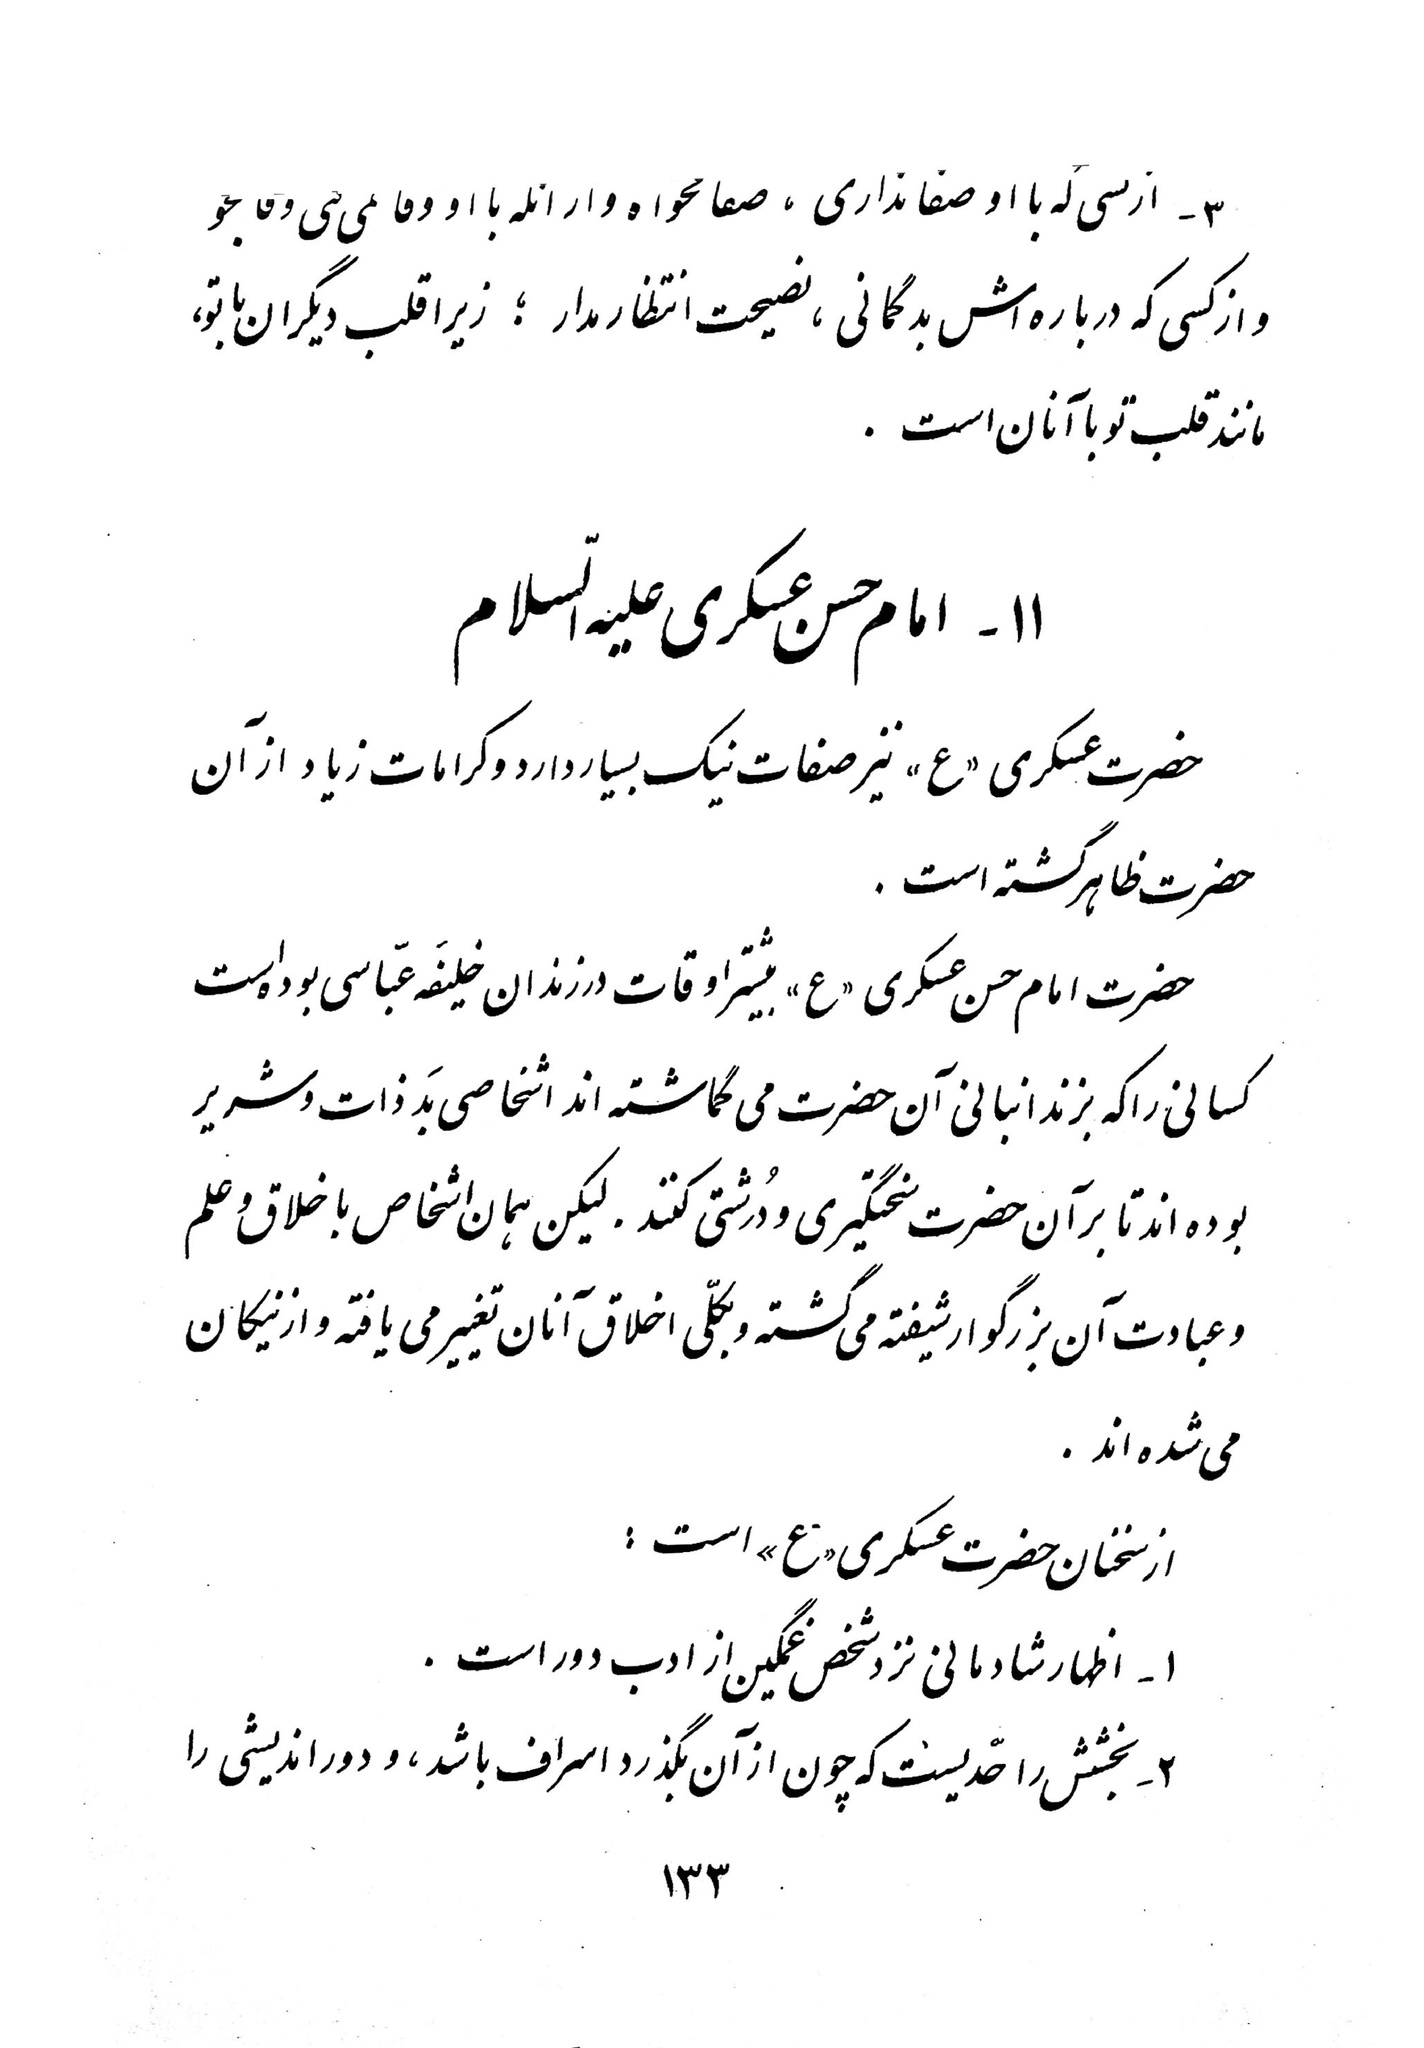 ۳ـ از کسی که با او صفا نداری ، صفا مخواه و از آنکه با او وفا نمی کنی وفا مجو
و از کسی که درباره اش بدگمانی ، نصیحت انتظار مدار ؛ زیرا قلب دیگران با تو،
مانند قلب تو با آنان است .
۱۱ـ امام حسن عسکری علیه السّلام
حضرت عسکری «ع» نیز صفات نیک بسیار دارد و کرامات زیاد از آن
حضرت ظاهر گشته است .
حضرت امام حسن عسکری «ع» بیشتر اوقات در زندان خلیفَه عبّاسی بوده است
کسانی را که بزندانبانی آن حضرت می گماشته اند اشخاصی بَد ذات و شریر
بوده اند تا بر آن حضرت سختگیری و دُرشتی کنند . لیکن همان اشخاص باخلاق و علم
و عبادت آن بزرگوار شیفته می گشته و بکلّی اخلاق آنان تغییر می یافته و از نیکان
می شده اند .
از سخنان حضرت عسکری «ع» است :
۱ـ اظهار شادمانی نزد شخص غمگین از ادب دور است .
۲ـ بخشش را حدّیست که چون از آن بگذرد اسراف باشد ، و دوراندیشی را
۱۳۳